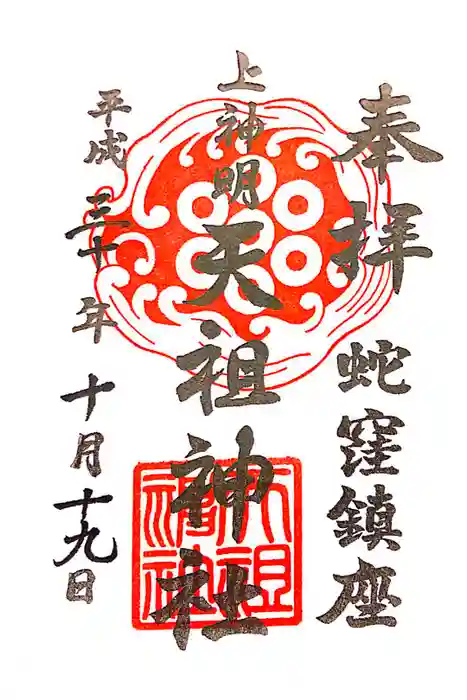 奉拝 蛇窪鎮座
上神明天祖神社
平成三十年十月十九日
天祖神社